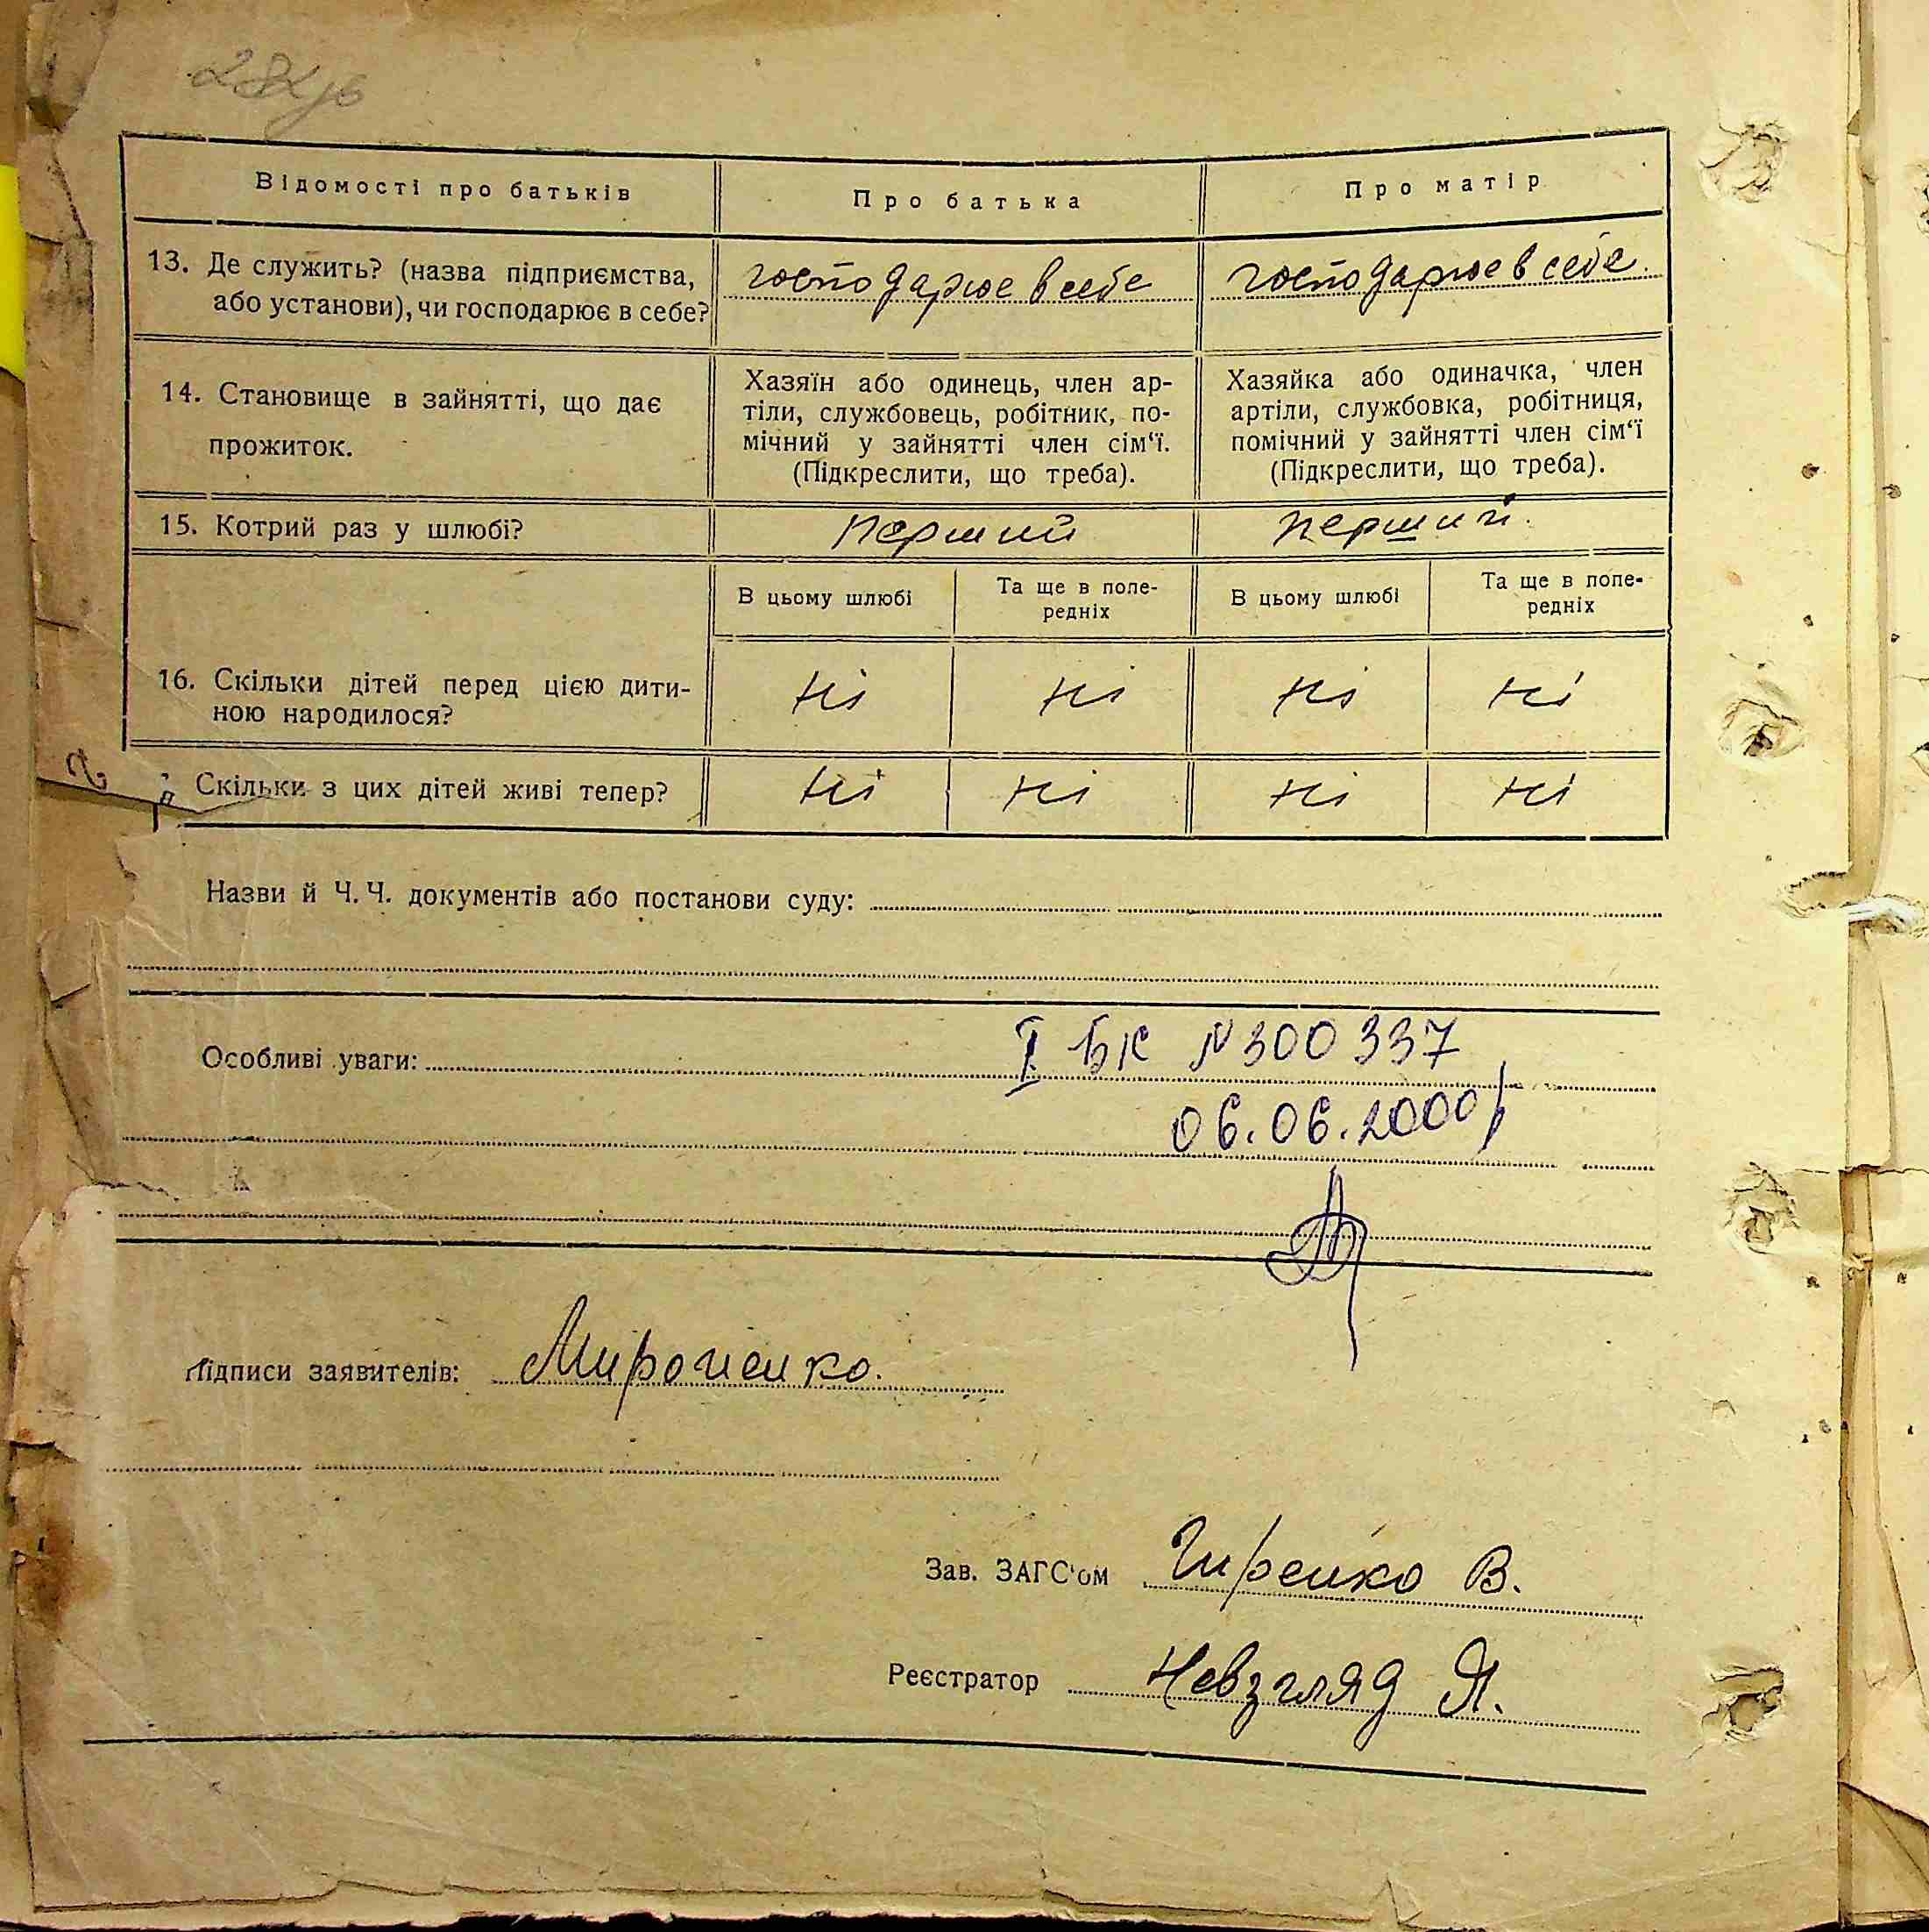 282зв
Відомості про батьків
Про батька
Про матір
13. Де служить? (назва підприємства,
або установи), чи господарює в себе?
господарює в себе
господарює в себе.
14. Становище в зайнятті, що дає
прожиток.
Хазяїн або одинець, член ар-
тіли, службовець, робітник, по-
мічний у зайнятті член сім‘ї.
(Підкреслити, що треба).
Хазяйка або одиначка, член
артіли, службовка, робітниця,
помічний у зайнятті член сім‘ї
(Підкреслити, що треба).
15. Котрий раз у шлюбі?
Перший
Перший.
В цьому шлюбі
Та ще в попе-
редніх
В цьому шлюбі
Та ще в попе-
редніх
16. Скільки дітей перед цією дити-
ною народилося?
ні
ні
ні
ні
Скільки з цих дітей живі тепер?
ні
ні
ні
ні
Назви й Ч. Ч. документів або постанови суду:
Особливі уваги:
I БК N 300 337
06.06.2000р
Підписи заявителів: Мироненко.
Зав. ЗАГС‘ом Гиренко В.
Реєстратор Невзгляд Я.